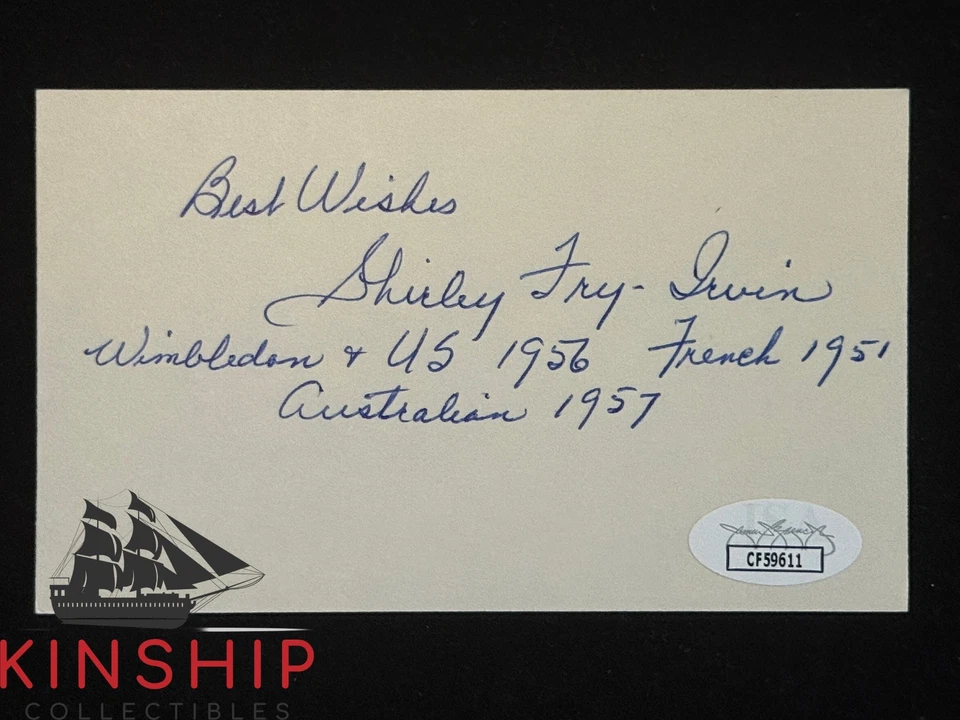 Best Wishes
Shirley Fry-Irvin
Wimbledon & US 1956 French 1951
Australian 1957
JSA
CF59611
KINSHIP
COLLECTIBLES